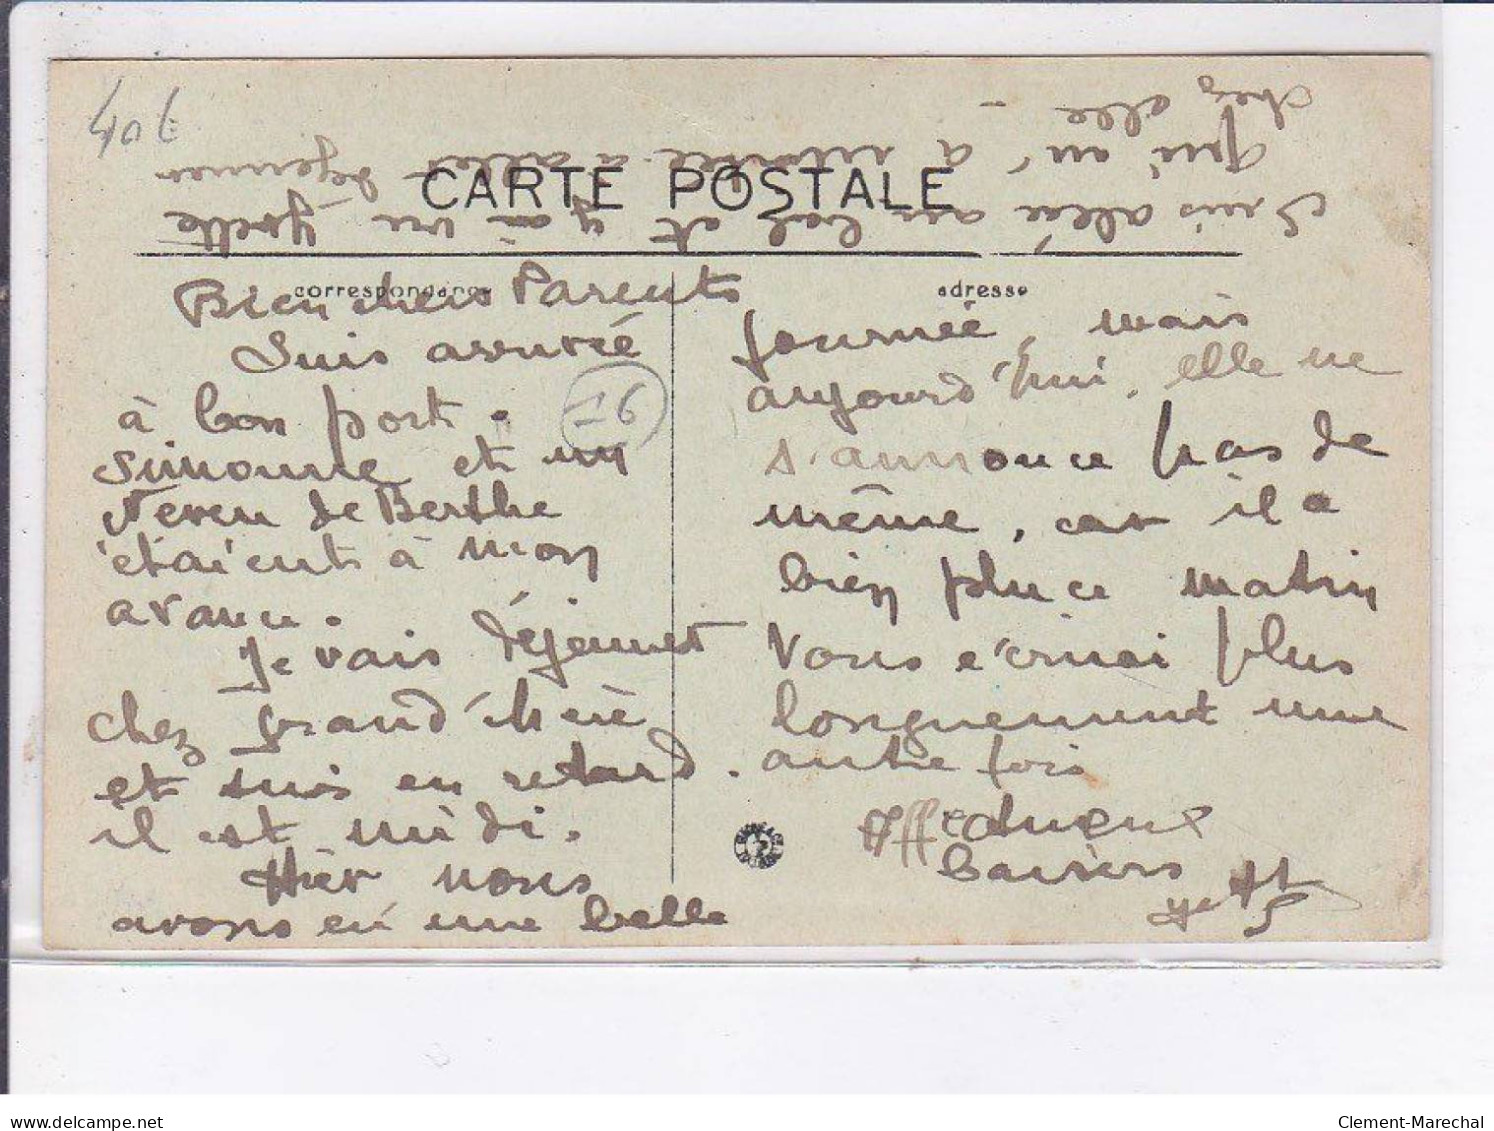 40€
CARTE POSTALE
correspondance
adresse
Bien chers Parents
Suis arrivée
à bon port.
16
Simonne et un
Neveu de Berthe
étaient à mon
avance.
Je vais déjeuner
chez grand'mère
et suis en retard.
il est midi.
Hier nous
avons eu une belle
journée, mais
aujourd'hui, elle ne
s'annonce pas de
même, car il a
bien plu ce matin
Vous écrirai plus
longuement une
autre fois
Affectueux
baisers
Suis allée au bal et y ai vu Yvette
qui m'a invitée à aller déjeuner
chez elle -
Clement-Marechal
delcampe.net